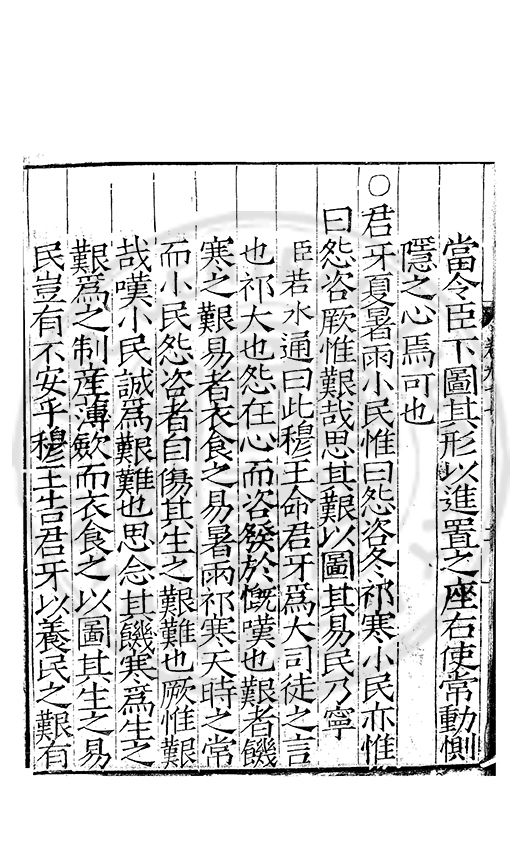 當令臣下圖其形以進置之座右使常動惻
隱之心焉可也
○君牙夏暑雨小民惟曰怨咨冬祁寒小民亦惟
曰怨咨厥惟艱哉思其艱以圖其易民乃寧
臣若水通曰此穆王命君牙爲大司徒之言
也祁大也怨在心而咨發於慨嘆也艱者饑
寒之艱易者衣食之易暑雨祁寒天時之常
而小民怨咨者自傷其生之艱難也厥惟艱
哉嘆小民誠爲艱難也思念其饑寒爲生之
艱爲之制産薄歛而衣食之以圖其生之易
民豈有不安乎穆王告君牙以養民之艱有